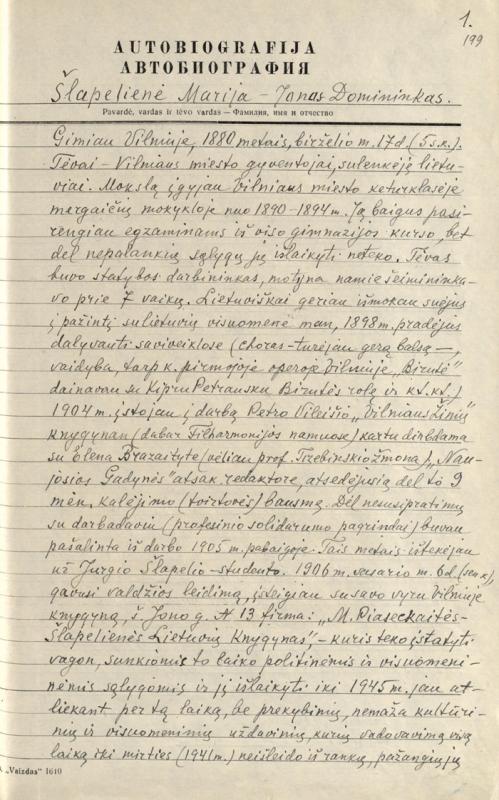 1.
199
AUTOBIOGRAFIJA
АВТОБИОГРАФИЯ
Šlapelienė Marija – Jonas Domininkas.
Pavardė, vardas ir tėvo vardas — Фамилия, имя и отчество
Gimiau Vilniuje, 1880 metais, birželio m. 17 d (5 s.k.).
Tėvai – Vilniaus miesto gyventojai, sulenkėję lietu-
viai. Mokslą įgyjau Vilniaus miesto keturklasėje
mergaičių mokykloje nuo 1890–1894 m. Ją baigus pasi-
rengiau egzaminams iš viso gimnazijos kurso, bet
dėl nepalankių sąlygų jų išlaikyti neteko. Tėvas
buvo statybos darbininkas, motyna namie šeimininka-
vo prie 7 vaikų. Lietuviškai geriau išmokau suėjus
į pažintį su lietuvių visuomene man, 1898 m. pradėjus
dalyvauti saviveikloe (choras – turėjau gerą balsą –,
vaidyba, tarp k. pirmojoje operoje Vilniuje, „Birutė"
dainavau su Kipru Petrausku Birutės rolę ir kt. kt.)
1904 m. įstojau į darbą Petro Vileišio „Vilniaus Žinių"
knygynan (dabar Filharmonijos namuose) kartu dirbdama
su Elena Brazaityte (vėliau prof. Tzebinskio žmona), „Nau-
josios Gadynės" atsak. redaktore, atsėdėjusią dėl to 9
mėn. kalėjimo (tvirtovės) bausmę. Dėl nesusipratimų
su darbadaviu (profesinio solidarumo pagrindai) buvau
pašalinta iš darbo 1905 m. pabaigoje. Tais metais ištekėjau
už Jurgio Šlapelio – studento. 1906 m. vasario m. 6 d (sen. k),
gavusi valdžios leidimą, įsteigiau su savo vyru Vilniuje
knygyną, š. Jono g. № 13 firma: „M. Piaseckaitės-
Šlapelienės Lietuvių Knygynas", – kuris teko įstatyti
vagon, sunkiomis to laiko politinėmis ir visuomeni-
nėmis sąlygomis ir jį išlaikyti iki 1945 m. jau at-
liekant per tą laiką, be prekybinių, nemaža kultūri-
nių ir visuomeninių uždavinių, kurių vadovavimą visą
laiką iki mirties (1941 m.) neišleido iš rankų, pažangiųjų
„Vaizdas" 1610